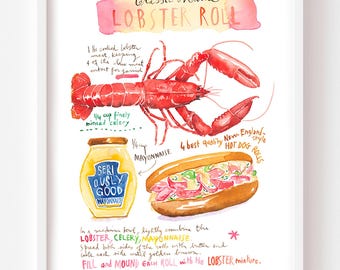 LOBSTER ROLL
1 lb cooked lobster
meat, keeping
4 of the claw meat
intact for garnish
1/4 cup finely
minced celery
1/4 cup
MAYONNAISE
4 best quality New England-style
HOT DOG ROLLS
SERI
OUSLY
GOOD
MAYONNAISE
In a medium bowl, lightly combine the
LOBSTER, CELERY, MAYONNAISE.
Spread both sides of the rolls with butter and
each side until golden brown.
FILL and MOUND EACH ROLL with the LOBSTER mixture.